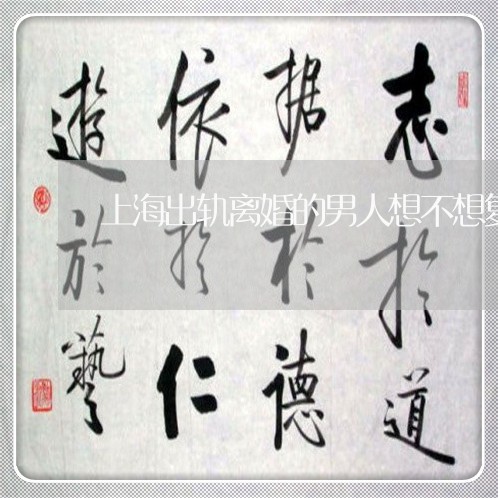 志於道
据於德
依於仁
遊於藝
上海出轨离婚的男人想不想